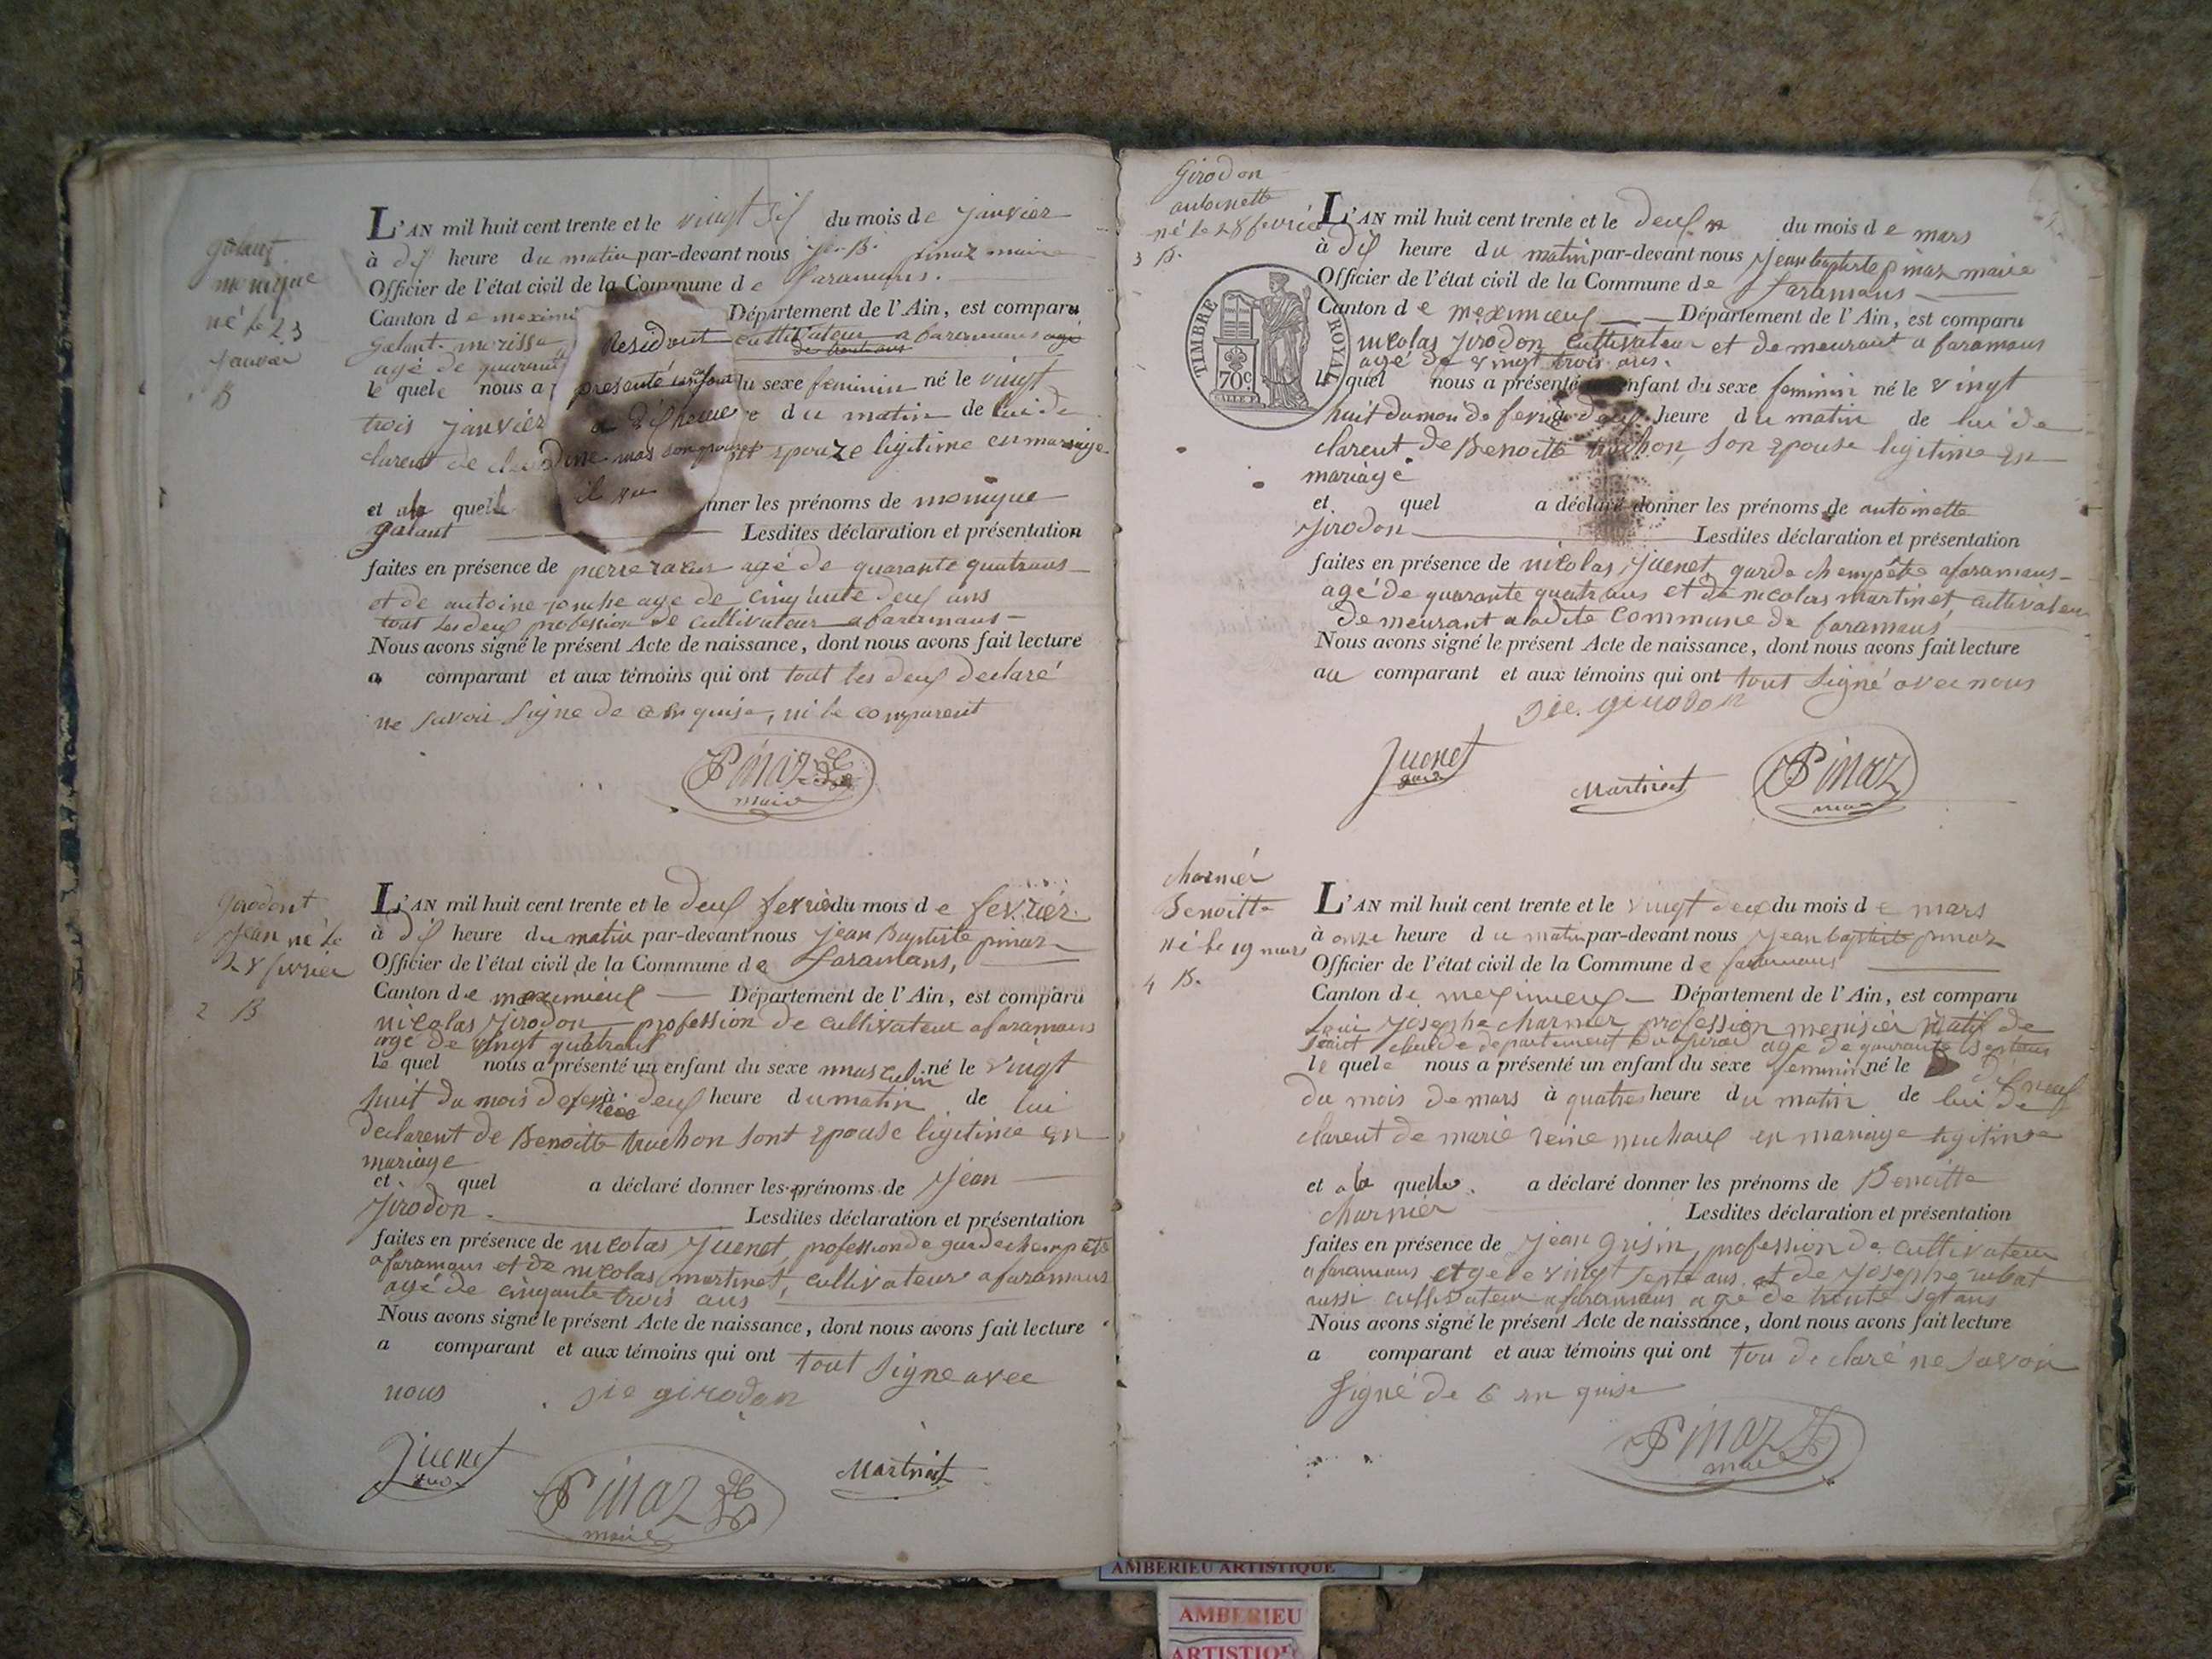 galant
monique
né le 23
janvier
B
L'AN mil huit cent trente et le vingt six du mois de janvier
à dix heure du matin par-devant nous je. B. pinaz maire
Officier de l'état civil de la Commune de faramans.
Canton de meximi Département de l'Ain, est comparu
galant résidant cultivateur a faramans agé
agé de quarant de trente ans
le quele nous a présenté un enfant du sexe feminin né le vingt
trois janvier a dix heure du matin de lui de
clarent de claudine mas son epouze legitime en mariage
et a la quelle il nner les prénoms de monique
galant Lesdites déclaration et présentation
faites en présence de pierre agé de quarante quatrans
et de antoine age de cinquante deux ans
tout les deux profession de cultivateur a faramans
Nous avons signé le présent Acte de naissance, dont nous avons fait lecture
a comparant et aux témoins qui ont tout les deux declaré
ne savoir signe de ce enquise, ni le comparent
Pinaz
maire
girodont
jean né le
28 fevrier
2 B
L'AN mil huit cent trente et le deux fevrie du mois de fevrier
à dix heure du matin par-devant nous jean Baptiste pinaz
Officier de l'état civil de la Commune de faramans,
Canton de meximieux Département de l'Ain, est comparu
nicolas jirodon profession de cultivateur a faramans
age de vingt quatrans
le quel nous a présenté un enfant du sexe masculin né le vingt
huit du mois de fevrie à deux heure du matin de lui
declarent de Benoitte truchon sont epouse legitime en
mariage
et quel a déclaré donner les prénoms de jean
jirodon. Lesdites déclaration et présentation
faites en présence de nicolas juenet, profession de garde chempete
a faramans et de nicolas martinet, cultivateur a faramans
agé de cinquante trois ans
Nous avons signé le présent Acte de naissance, dont nous avons fait lecture
a comparant et aux témoins qui ont tout signe avec
nous girodon
Juenet
Pinaz
maire
Martinet
Girodon
antoinette
né le 28 fevrié
3 B.
L'AN mil huit cent trente et le deux du mois de mars
à dix heure du matin par-devant nous jean baptiste pinaz maire
Officier de l'état civil de la Commune de faramans
Canton de meximieux Département de l'Ain, est comparu
nicolas jirodon cultivateur et demeurant a faramans
agé de vingt trois ans.
le quel nous a présenté enfant du sexe feminin né le vingt
huit du moi de fevrie à deux heure du matin de lui de
clarent de Benoitte truchon, son epouse legitime en
mariage
et quel a déclaré donner les prénoms de antoinette
jirodon Lesdites déclaration et présentation
faites en présence de nicolas juenet garde chempêtre a faramans
agé de quarante quatrans et de nicolas martinet, cultivateur
demeurant a ladite commune de faramans
Nous avons signé le présent Acte de naissance, dont nous avons fait lecture
au comparant et aux témoins qui ont tout signé avec nous
girodon
Juenet
Martinet
Pinaz
maire
TIMBRE ROYAL
70c
charnier
Benoitte
né le 19 mars
4 B.
L'AN mil huit cent trente et le vingt deux du mois de mars
à onze heure du matin par-devant nous jean baptiste pinaz
Officier de l'état civil de la Commune de faramans
Canton de meximieux Département de l'Ain, est comparu
Loui josephe charnier profession menisier natif de
saint claude departement du agé de quarante septans
le quele nous a présenté un enfant du sexe feminin né le dix neuf
du mois de mars à quatres heure du matin de lui de
clarent de marie reine michaux en mariage legitime
et a la quelle. a déclaré donner les prénoms de Benoitte
charnier Lesdites déclaration et présentation
faites en présence de jean grisin, profession de cultivateur
a faramans et de vingt septe ans et de josephe rubat
aussi cultivateur a faramans agé de trente septans
Nous avons signé le présent Acte de naissance, dont nous avons fait lecture
a comparant et aux témoins qui ont tou declaré ne savoir
signé de ce en quise
Pinaz
maire
AMBERIEU ARTISTIQUE
AMBERIEU
ARTISTIQUE